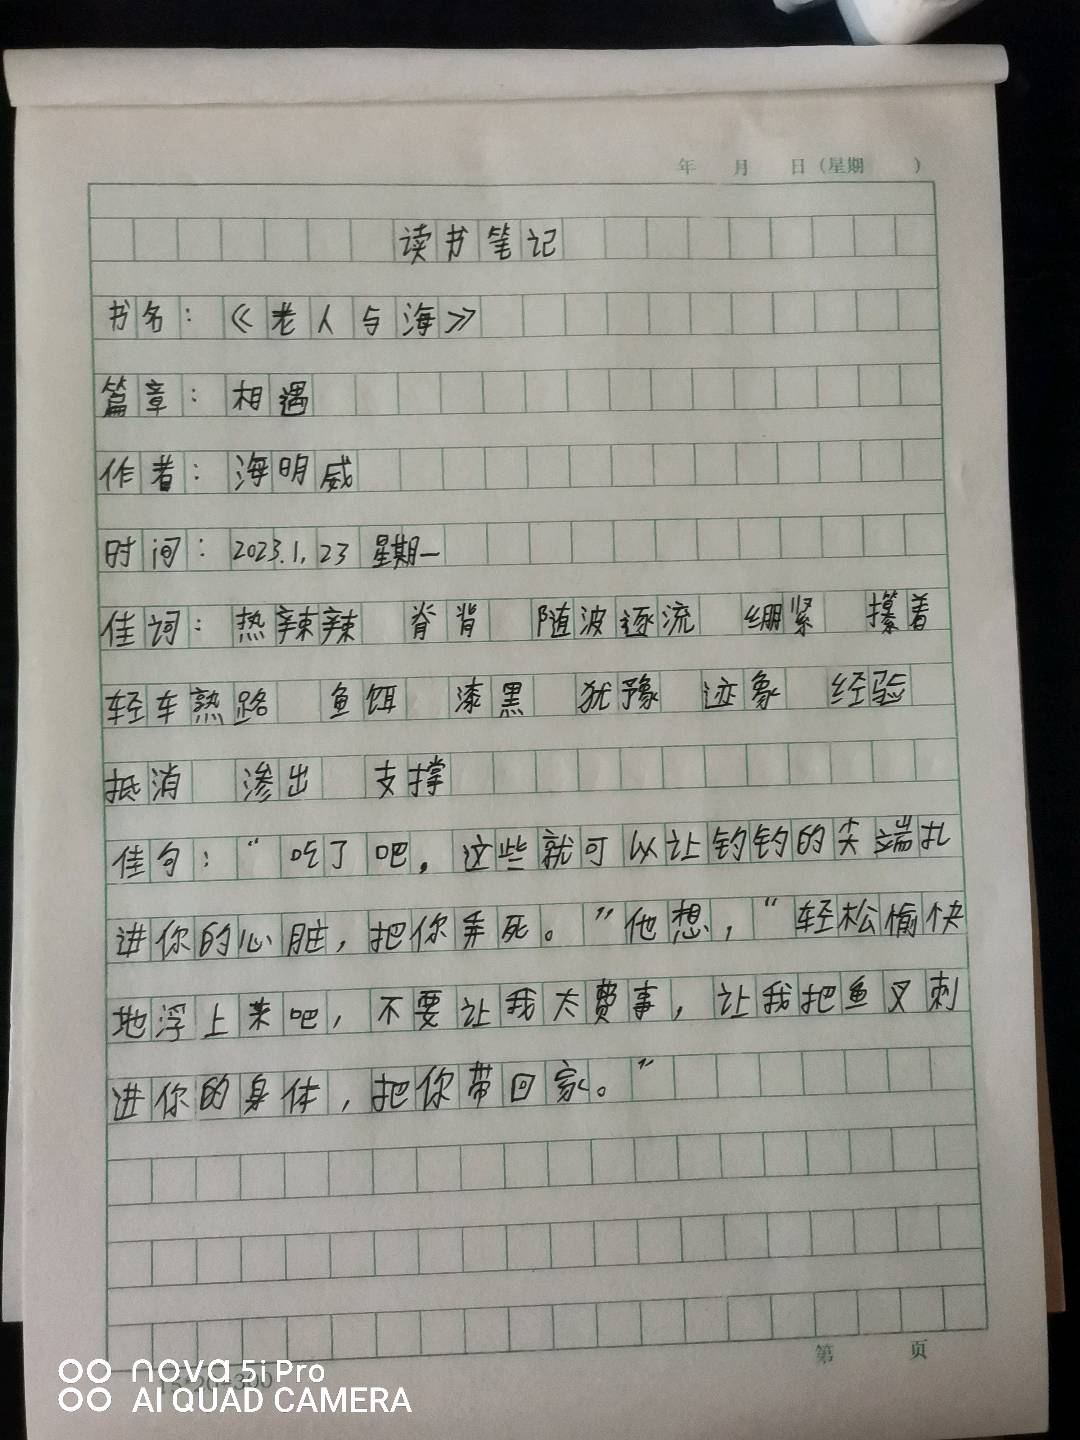 年 月 日（星期 ）
读书笔记
书名：《老人与海》
篇章：相遇
作者：海明威
时间：2023.1.23 星期一
佳词：热辣辣 脊背 随波逐流 绷紧 攥着
轻车熟路 鱼饵 漆黑 犹豫 迹象 经验
抵消 渗出 支撑
佳句：“吃了吧，这些就可以让钓钓的尖端扎
进你的心脏，把你弄死。”他想，“轻松愉快
地浮上来吧，不要让我太费事，让我把鱼叉刺
进你的身体，把你带回家。”
第 页
nova 5i Pro
AI QUAD CAMERA